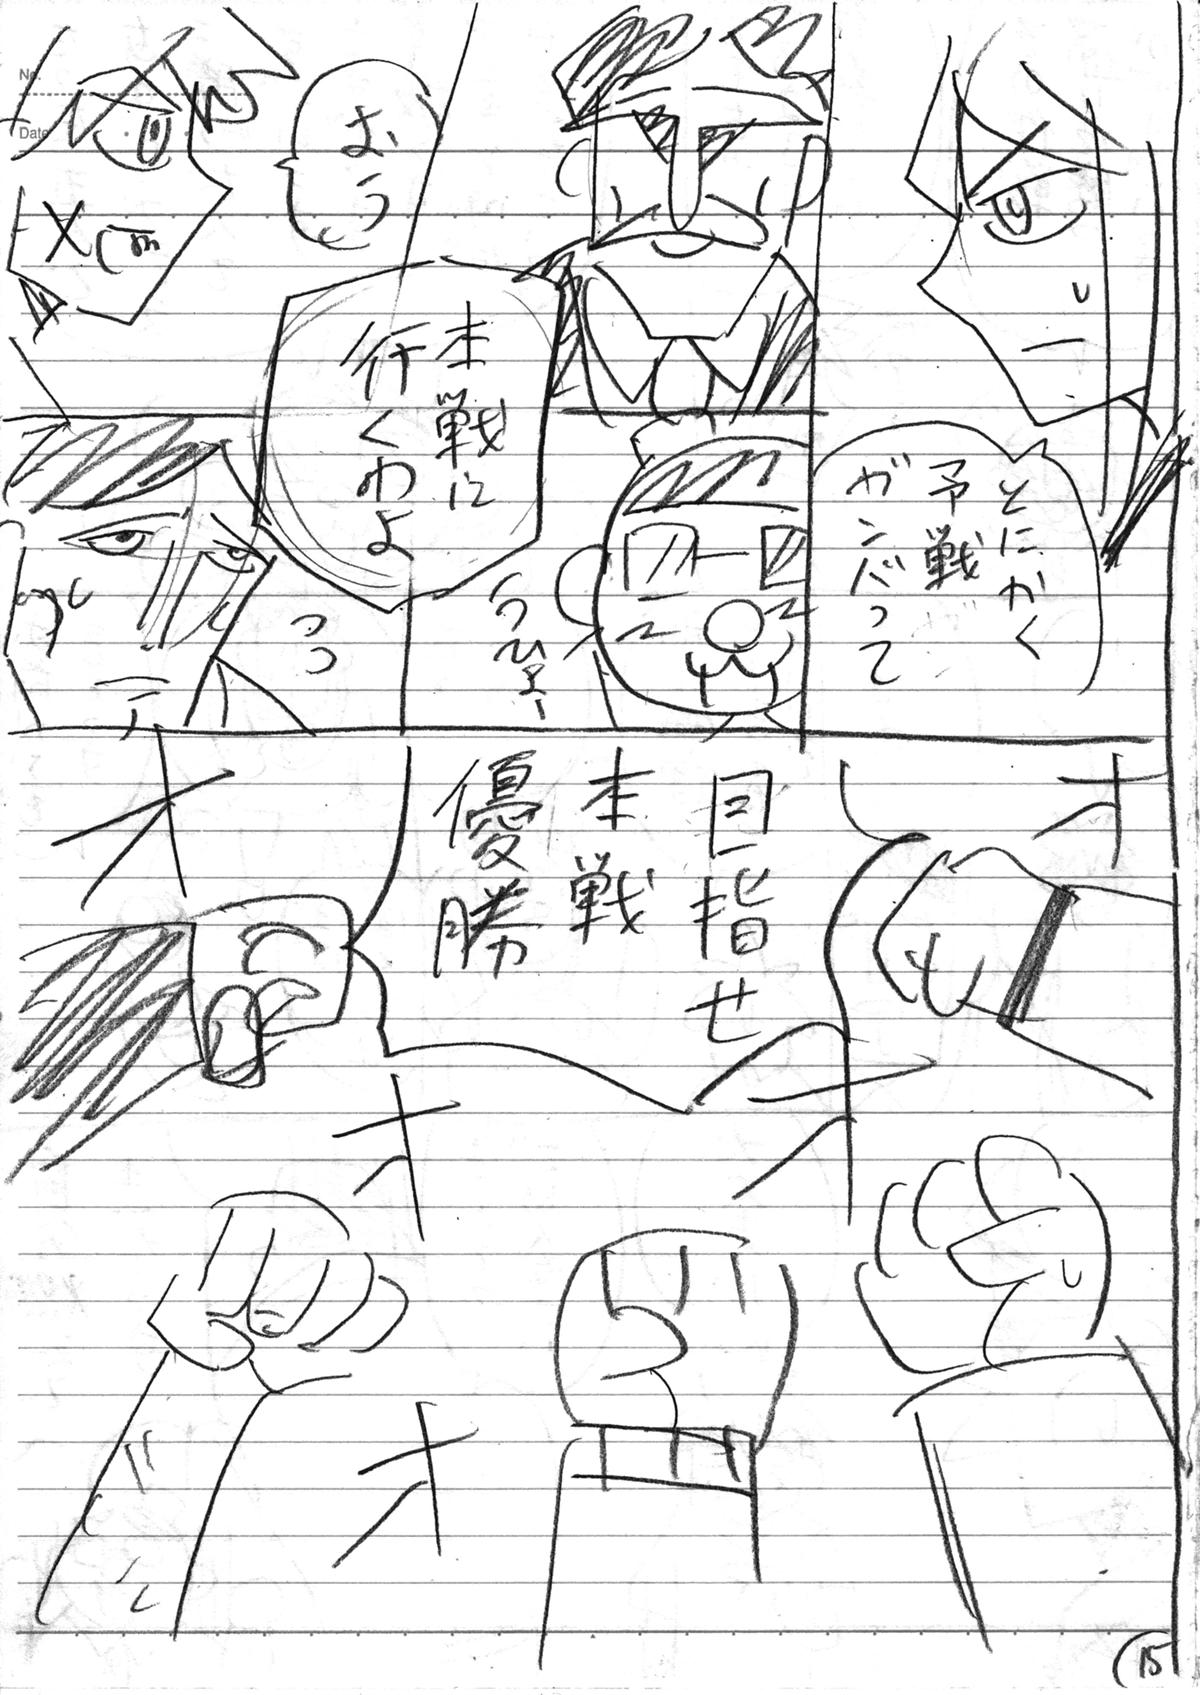 とにかく
予戦
ガンバって
本戦に
行くわよ
おう
うひょー
目指せ
本戦
優勝
オ
オ
オ
オ
オ
No.
Date
15